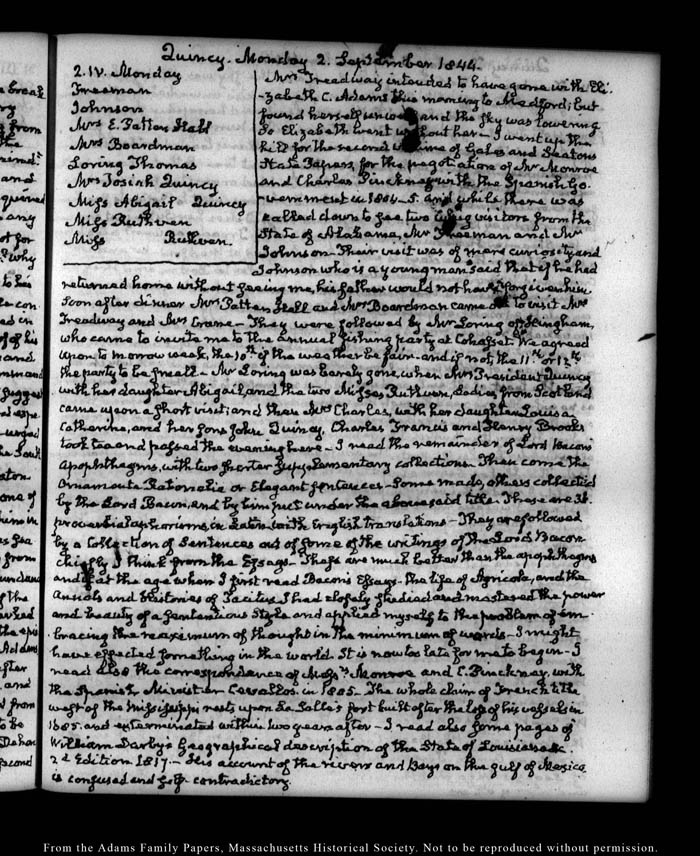 Quincy. Monday 2. September 1844.
2. IV. Monday
Freeman
Johnson
Mrs E. Patten Hall
Mrs Boardman
Loring Thomas
Mrs Josiah Quincy
Miss Abigail Quincy
Miss Ruthven
Miss Ruthven
Mrs Treadway intended to have gone with Eli-
-zabeth C. Adams this morning to Medford; but
found herself unwell and the sky was lowering
So Elizabeth went without her – I went up the
hill for the second volume of Gales and Seatons
State Papers, for the negotiations of Mr Monroe
and Charles Pinckney with the Spanish Go-
-vernment in 1804-5. and while there was
called down to see two Whig visitors from the
State of Alabama, Mr Freeman and Mr
Johnson – Their visit was of mere curiosity and
Johnson who is a young man said that if he had
returned home without seeing me, his father would not have forgiven him
Soon after dinner Mrs Patten Hall and Mrs Boardman came to visit Mrs
Treadway and Mrs Crane – They were followed by Mr Loring of Hingham,
who came to invite me to the annual fishing party at Cohasset. We agreed
upon to morrow week, the 10th if the weather be fair – and if not, the 11th or 12th
the party to be small – Mr Loring was barely gone, when Mrs President Quincy
with her daughter Abigail and the two Misses Ruthven, Ladies from Scotland
came upon a short visit; and then Mrs Charles, with her daughter Louisa
Catherine, and her sons John Quincy, Charles Francis and Henry Brooks
took tea and passed the evening here – I read the remainder of Lord Bacon's
apophthegms, with two shorter supplementary collections. Then come the
Ornamenta Rationalia or Elegant Sentences – Some made, others collected
by the Lord Bacon, and by him put under the above said title. These are
proverbial aphorisms in Latin with English translations – They are followed
by a Collection of Sentences out of some of the writings of the Lord Bacon
chiefly I think from the Essays – These are much better than the apophthegms
and if at the age when I first read Bacon's Essays – the life of Agricola, and the
Annals and Histories of Tacitus, I had closely studied and mastered the power
and beauty of a sententious style and applied myself to the problem of em-
-bracing the maximum of thought in the minimum of words – I might
have effected something in the world. It is now too late for me to begin – I
read also the correspondence of Messrs Monroe and C. Pinckney, with
the Spanish Minister Cevallos in 1805. The whole claim of French title
west of the Mississippi rests upon La Salle's fort built after the loss of his vessels in
1685. and exterminated within two years after – I read also some pages of
William Darby's Geographical description of the State of Louisiana &c.
2d Edition 1817. – His account of the rivers and Bays on the gulf of Mexico
is confused and self contradictory.
From the Adams Family Papers, Massachusetts Historical Society. Not to be reproduced without permission.